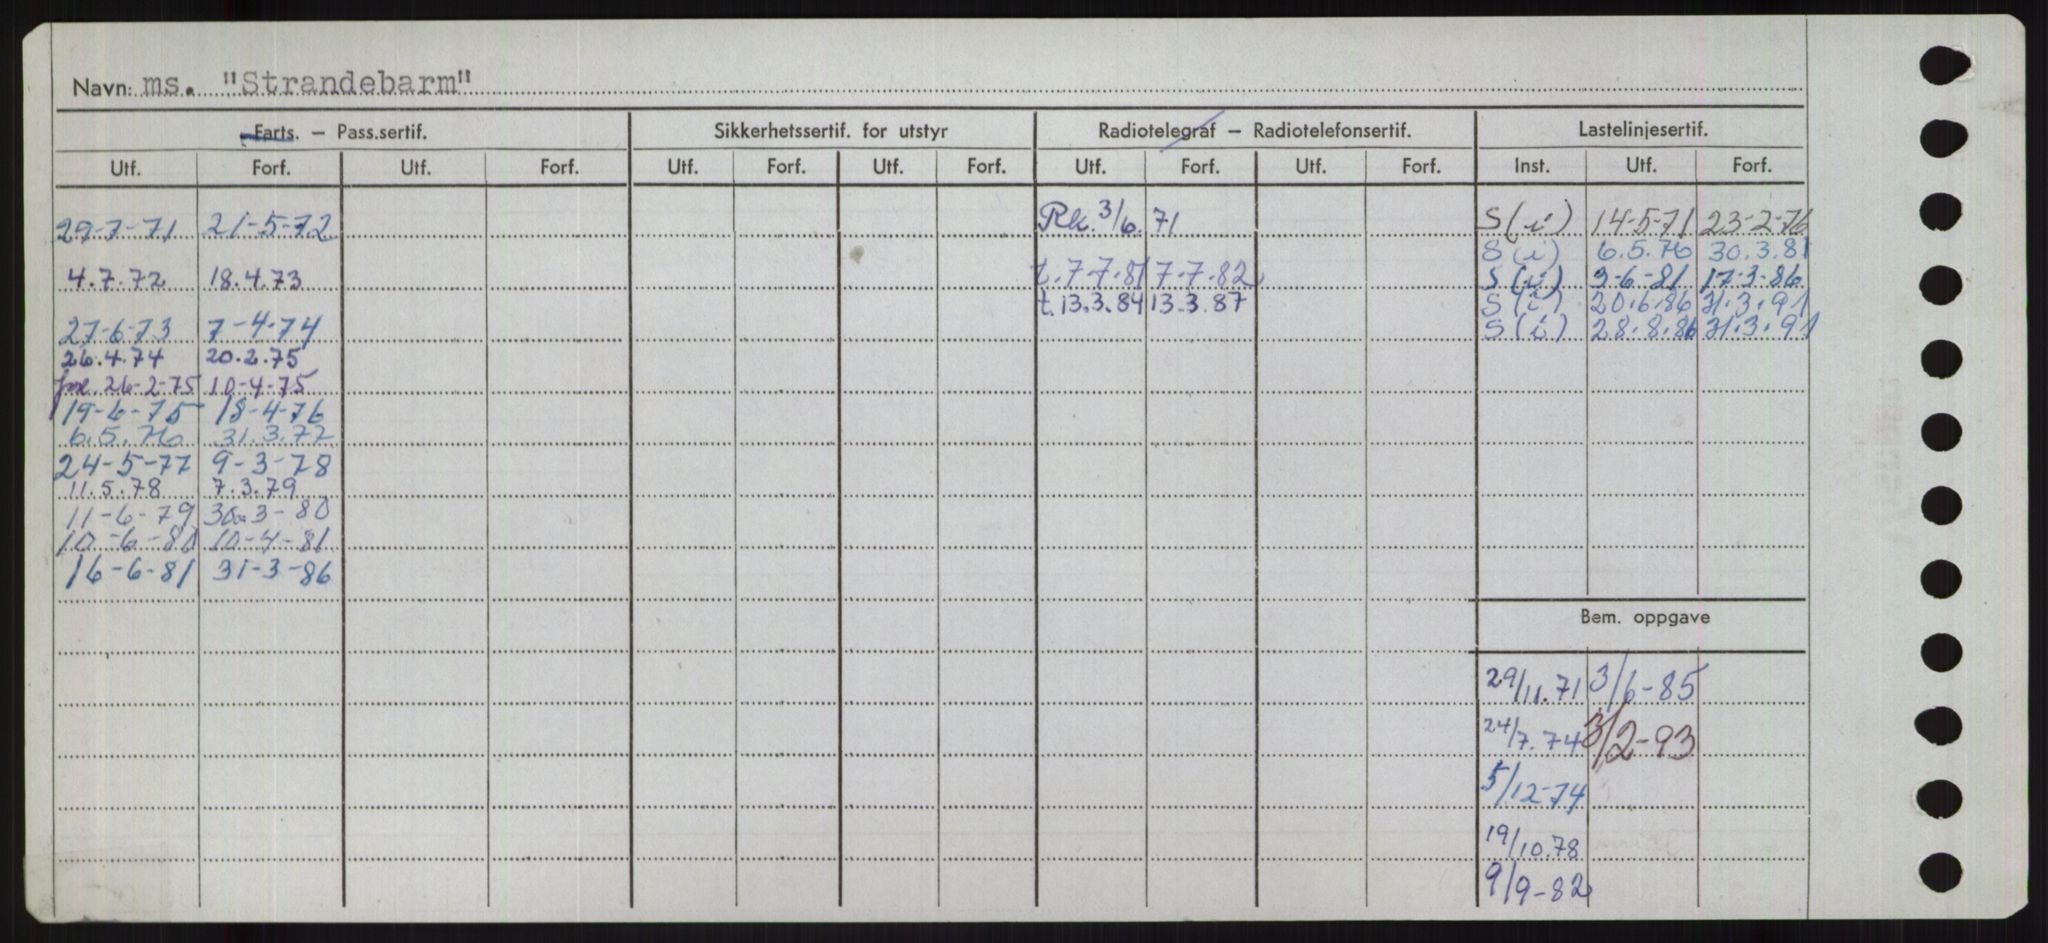 Navn: ms. "Strandebarm"
Farts. – Pass.sertif. Sikkerhetssertif. for utstyr Radiotelegraf – Radiotelefonsertif. Lastelinjesertif.
Utf. Forf. Utf. Forf. Utf. Forf. Utf. Forf. Utf. Forf. Utf. Forf. Inst. Utf. Forf.
29-7-71 21-5-72 Rk. 3/6. 71 S(i) 14-5-71 23-2-76
S(i) 6.5.76 30.3.81
4.7.72 18.4.73 t. 7-7-81 7-7-82 S(i) 3-6-81 17-3-86
t. 13.3.84 13.3.87 S(i) 20.6.86 31.3.91
27-6-73 7-4-74 S(i) 28.8.86 31.3.91
26.4.74 20.2.75
26-2-75 10-4-75
19-6-75 18-4-76
6.5.76 31.3.77
24-5-77 9-3-78
11.5.78 7.3.79
11-6-79 30-3-80
10-6-80 10-4-81
16-6-81 31-3-86
Bem. oppgave
29/11.71 3/6-85
24/7.74 3/2-93
5/12-74
19/10.78
9/9-82